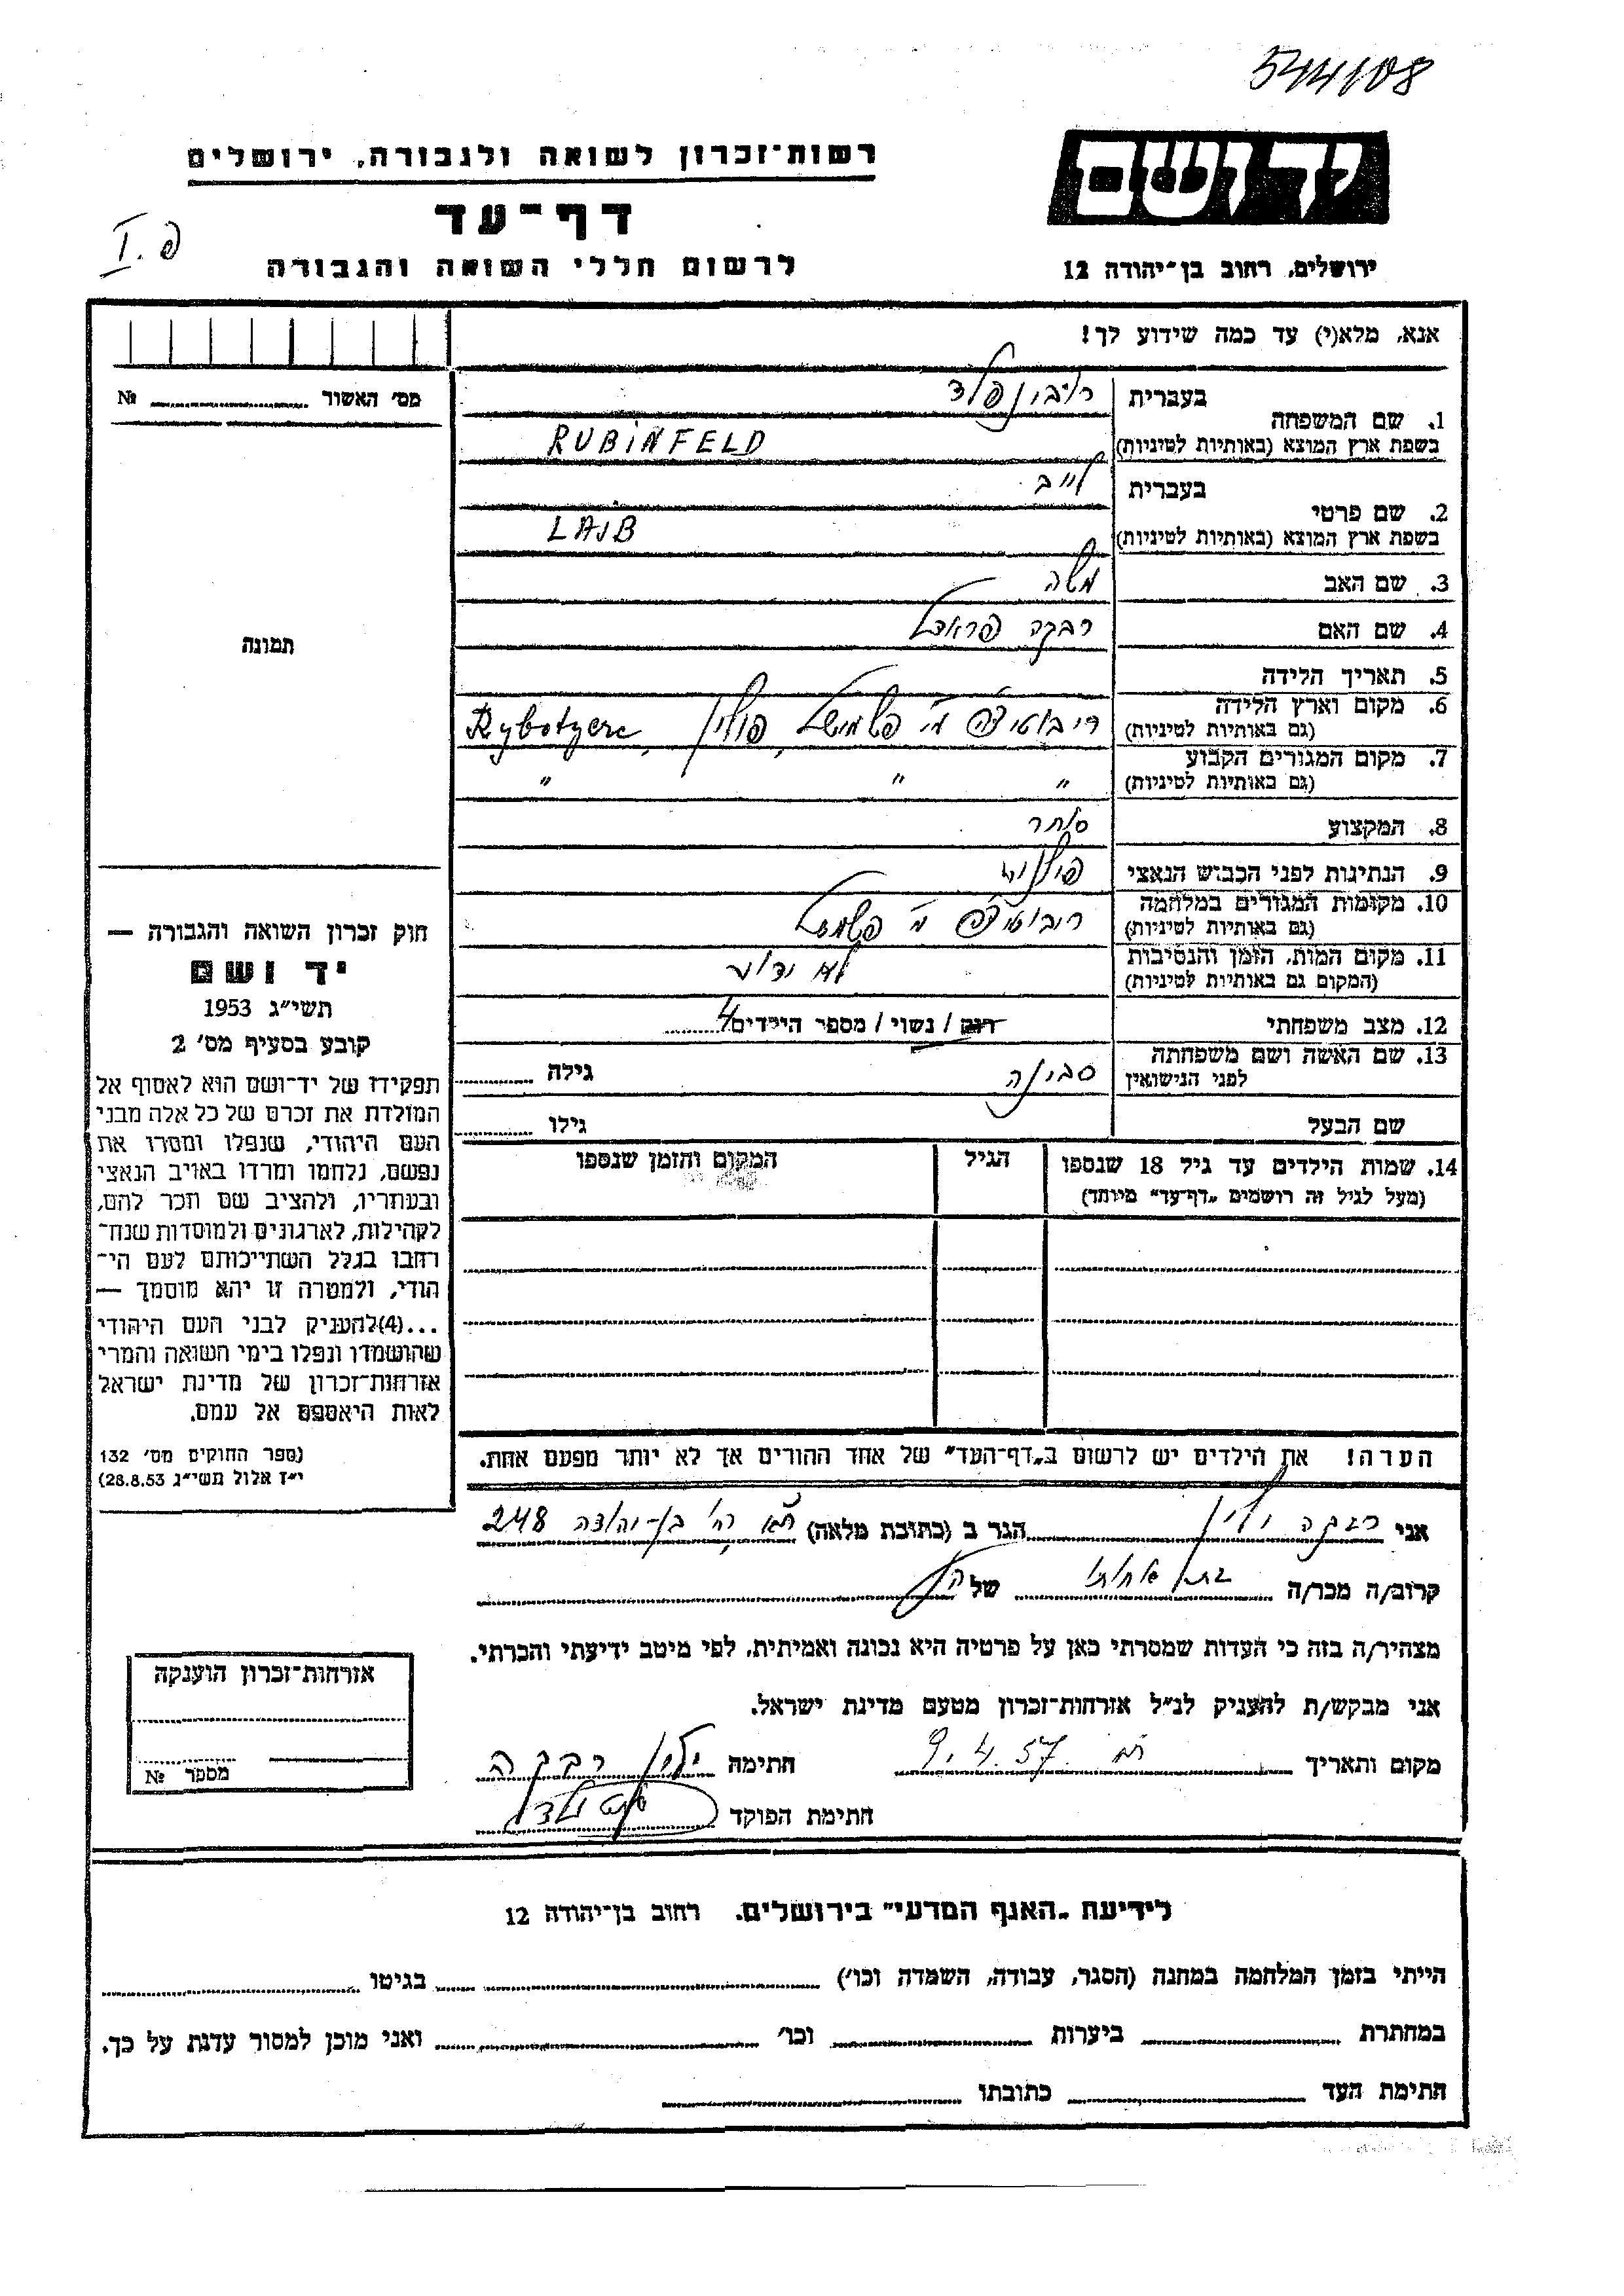 544108
יד ושם
רשות־זכרון לשואה ולגבורה, ירושלים
דף־עד
לרשום חללי השואה והגבורה
ירושלים, רחוב בן־יהודה 12
אנא, מלא(י) עד כמה שידוע לך!
מס׳ האשור № 
1. שם המשפחה
בעברית רובינפלד
בשפת ארץ המוצא (באותיות לטיניות) RUBINFELD
2. שם פרטי
בעברית לייב
בשפת ארץ המוצא (באותיות לטיניות) LAJB
3. שם האב משה
4. שם האם רבקה
5. תאריך הלידה
6. מקום וארץ הלידה
(גם באותיות לטיניות) פולין
7. מקום המגורים הקבוע
(גם באותיות לטיניות) " " "
8. המקצוע סוחר
9. הנתינות לפני הכבוש הנאצי פולנית
10. מקומות המגורים במלחמה
(גם באותיות לטיניות)
11. מקום המות, הזמן והנסיבות לא ידוע
(המקום גם באותיות לטיניות)
12. מצב משפחתי רוק / נשוי / מספר הילדים 4
13. שם האשה ושם משפחתה
לפני הנישואין סבינה גילה
שם הבעל גילו
14. שמות הילדים עד גיל 18 שנספו הגיל המקום והזמן שנספו
(מעל לגיל זה רושמים „דף־עד״ מיוחד)
הערה! את הילדים יש לרשום ב„דף־העד״ של אחד ההורים אך לא יותר מפעם אחת.
תמונה
חוק זכרון השואה והגבורה —
יד ושם
תשי״ג 1953
קובע בסעיף מס׳ 2
תפקידו של יד־ושם הוא לאסוף אל
המולדת את זכרם של כל אלה מבני
העם היהודי, שנפלו ומסרו את
נפשם, נלחמו ומרדו באויב הנאצי
ובעוזריו, ולהציב שם וזכר להם,
לקהילות, לארגונים ולמוסדות שנח־
רבו בגלל השתייכותם לעם הי־
הודי, ולמטרה זו יהא מוסמך —
...(4)להעניק לבני העם היהודי
שהושמדו ונפלו בימי השואה והמרי
אזרחות־זכרון של מדינת ישראל
לאות היאספם אל עמם.
(ספר החוקים מס׳ 132
י״ז אלול תשי״ג 28.8.53)
אני רבקה ילין הגר ב (כתובת מלאה) ת״א רח׳ בן־יהודה 248
קרוב/ה מכר/ה של
מצהיר/ה בזה כי העדות שמסרתי כאן על פרטיה היא נכונה ואמיתית, לפי מיטב ידיעתי והכרתי.
אני מבקש/ת להעניק לנ״ל אזרחות־זכרון מטעם מדינת ישראל.
מקום ותאריך 9.4.57 חתימה ילין רבקה
חתימת הפוקד
אזרחות־זכרון הוענקה
מספר №
לידיעת „האגף המדעי״ בירושלים, רחוב בן־יהודה 12
הייתי בזמן המלחמה במחנה (הסגר, עבודה, השמדה וכו׳) בגיטו
במחתרת ביערות וכו׳ ואני מוכן למסור עדות על כך.
חתימת העד כתובתו